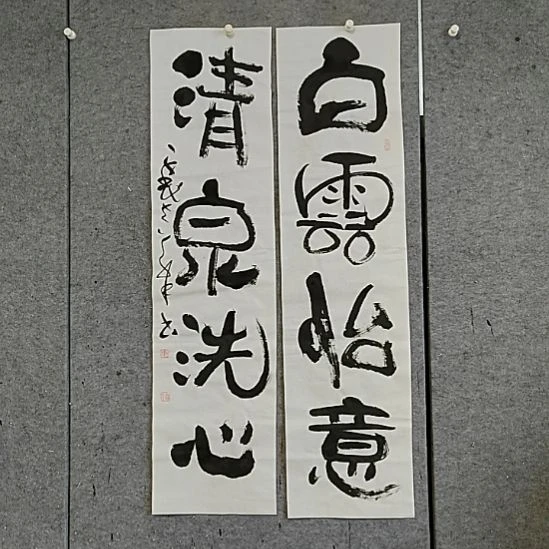 白雲怡意
清泉洗心